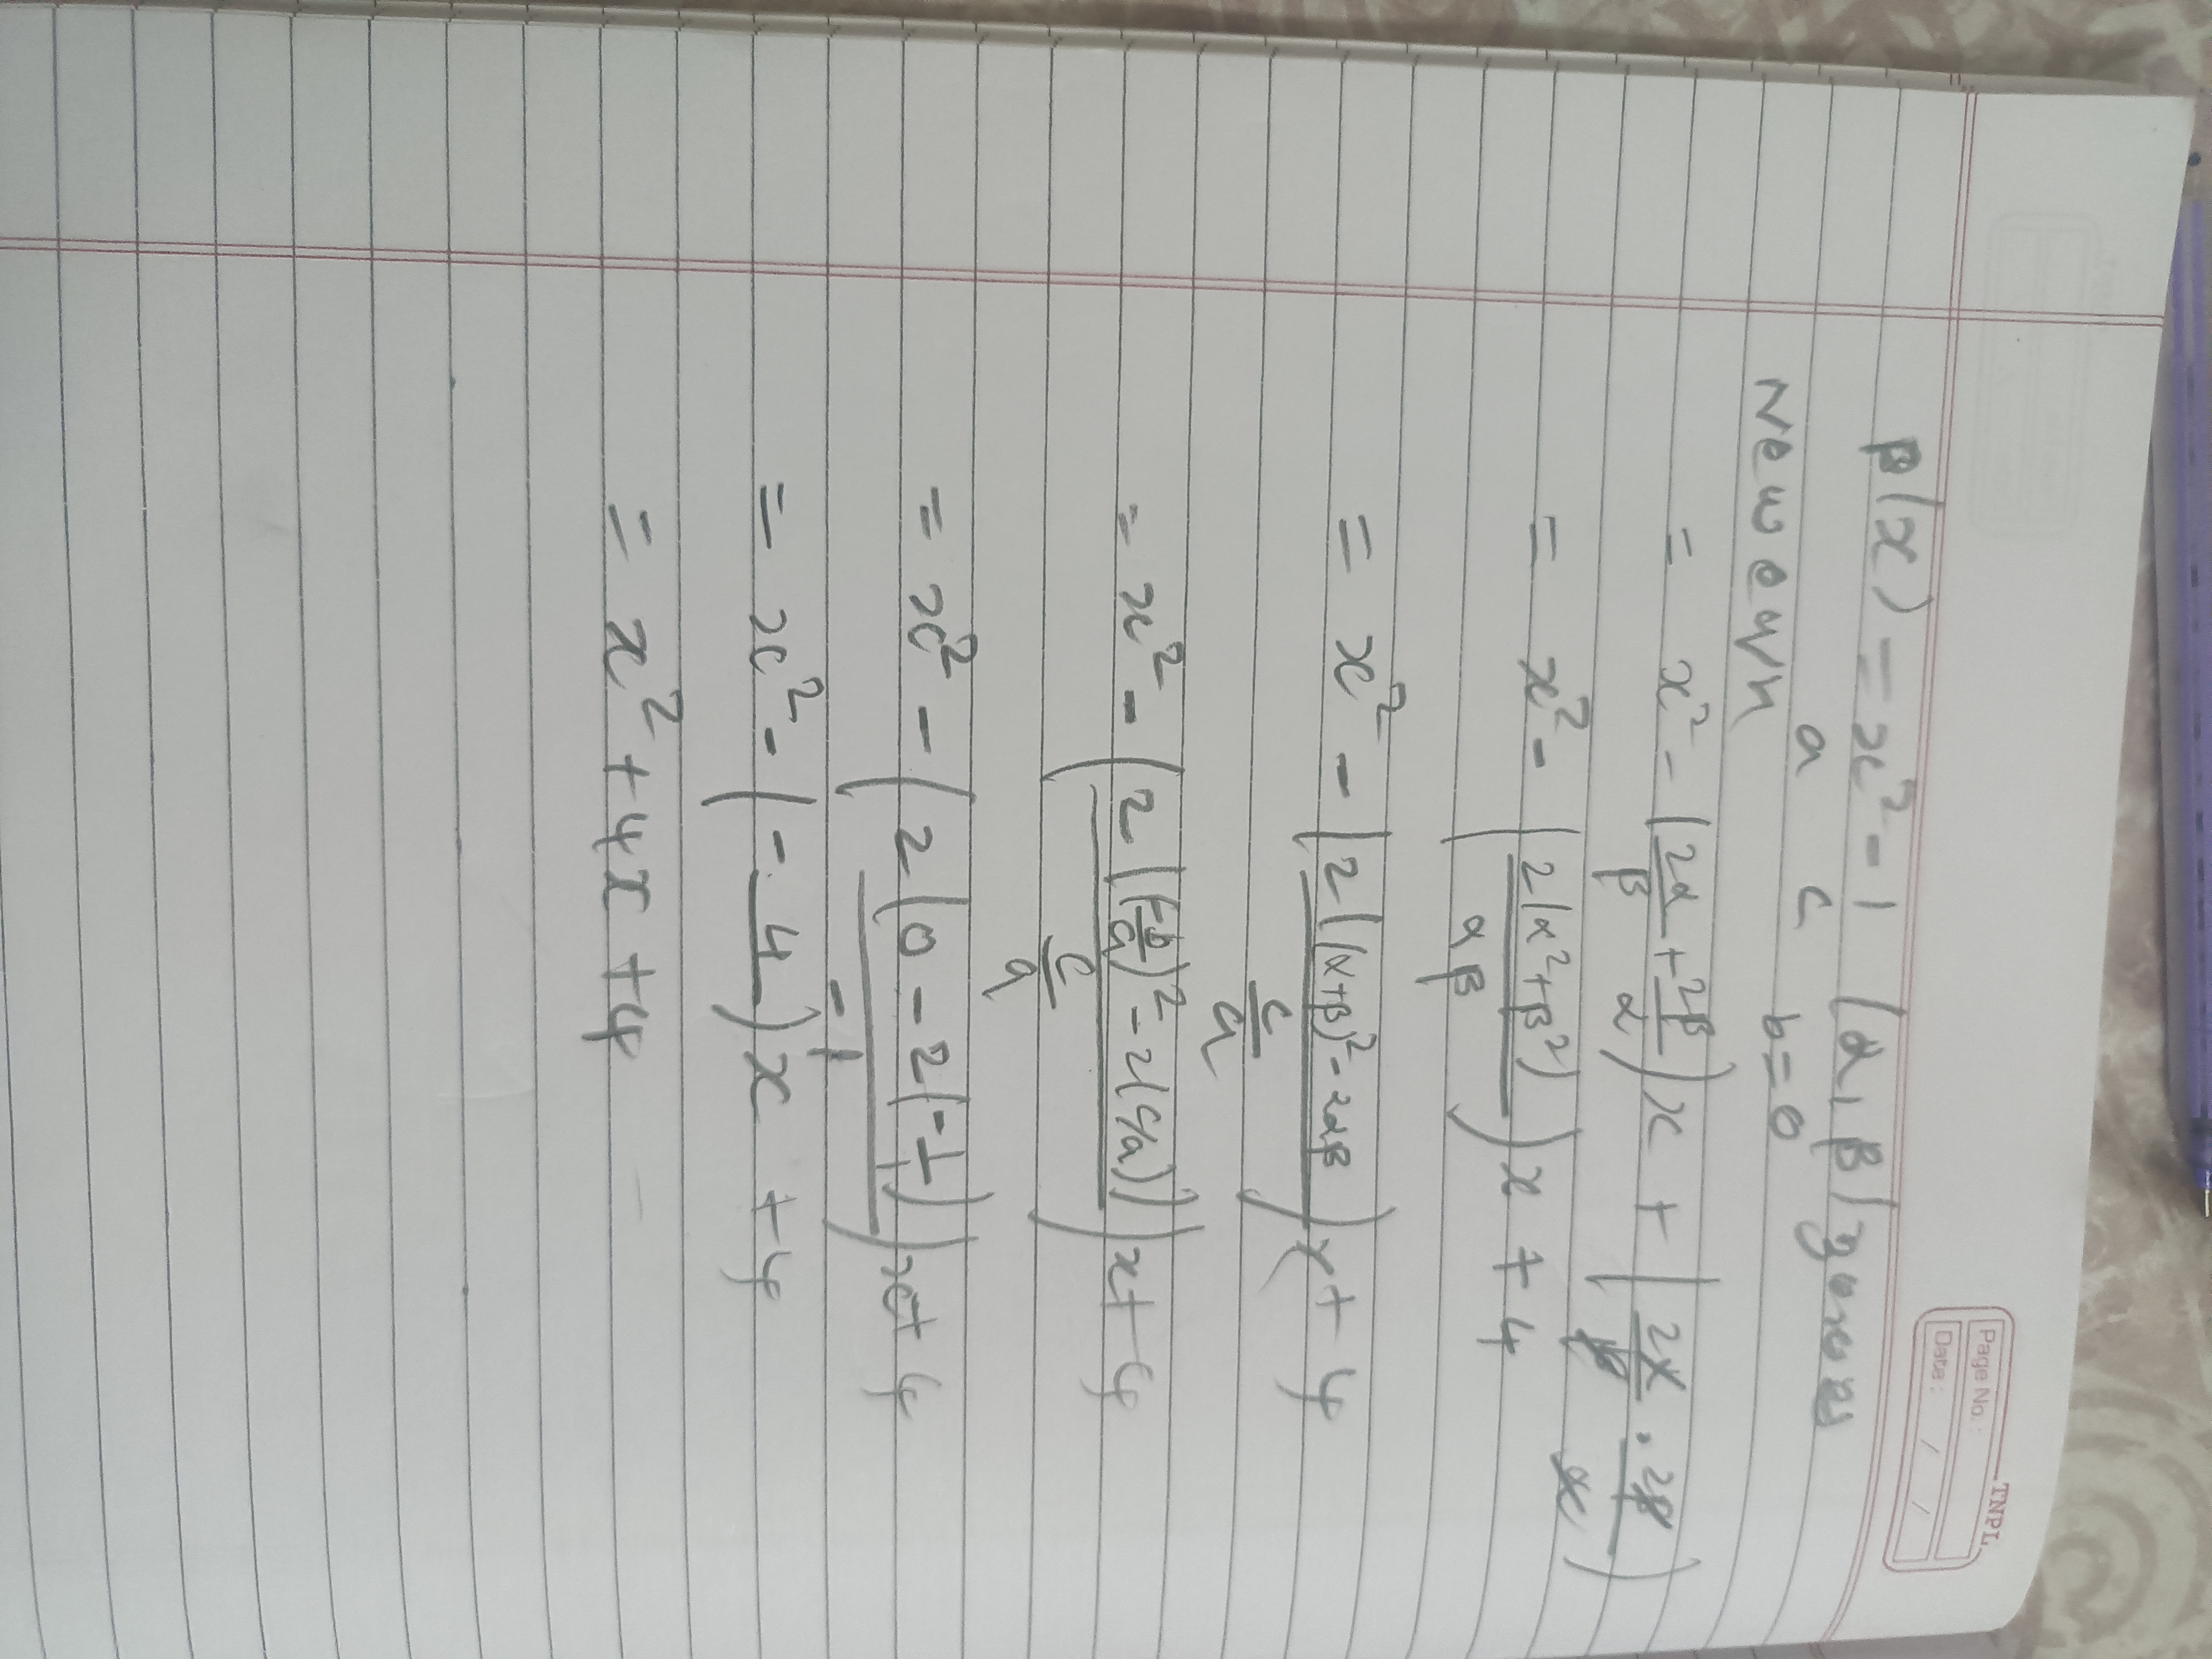 TNPL
Page No.:
Date: / /
p(x) = x² - 1 (α, β) zeroes
a c b=0
New eqn
= x² - (2α/β + 2β/α)x + (2α/β · 2β/α)
= x² - (2(α²+β²)/αβ)x + 4
= x² - (2((α+β)² - 2αβ/(c/a))x + 4
= x² - (2((-b/a)² - 2(c/a))/(c/a))x + 4
= x² - (2(0 - 2(-1))/-1)x + 4
= x² - (-4)x + 4
= x² + 4x + 4